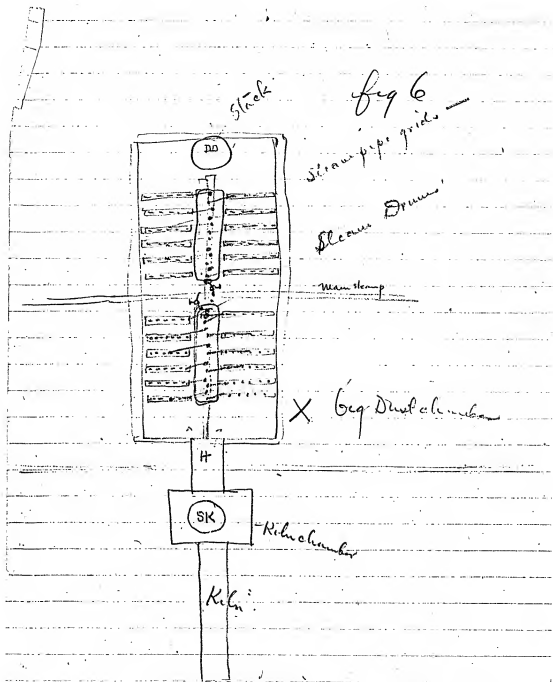 fig 6
Stack
DD
Steam pipe grids
Steam Drums
main steam
X Big Dust chamber
H
SK
Kiln chamber
Kiln